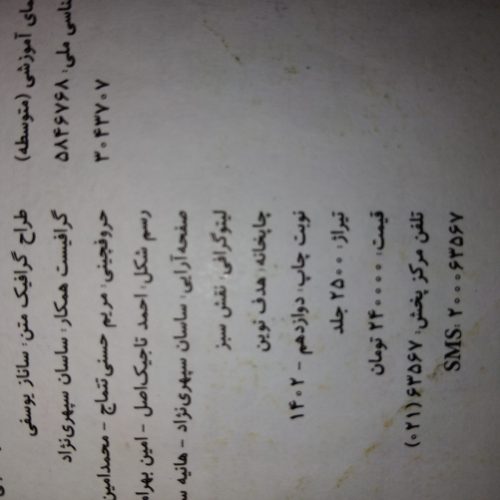 مای آموزشی (متوسطه)
ناسی ملی: ۵۸۴۶۷۶۸
۳۰۴۳۷۰۷
طراح گرافیک متن: ساناز یوسفی
گرافیست همکار: ساسان سپهری‌نژاد
حروفچینی: مریم حسنی‌نتماج - محمدامین
رسم شکل: احمد تاجیک‌اصل - امین بهرام
صفحه‌آرایی: ساسان سپهری‌نژاد - هانیه س
لیتوگرافی: نقش سبز
چاپخانه: هدف نوین
نوبت چاپ: دوازدهم - ۱۴۰۲
تیراژ: ۲۵۰۰ جلد
قیمت: ۲۴۰۰۰۰ تومان
تلفن مرکز پخش: ۶۳۵۶۷ (۰۲۱)
SMS: ۲۰۰۰۶۳۵۶۷